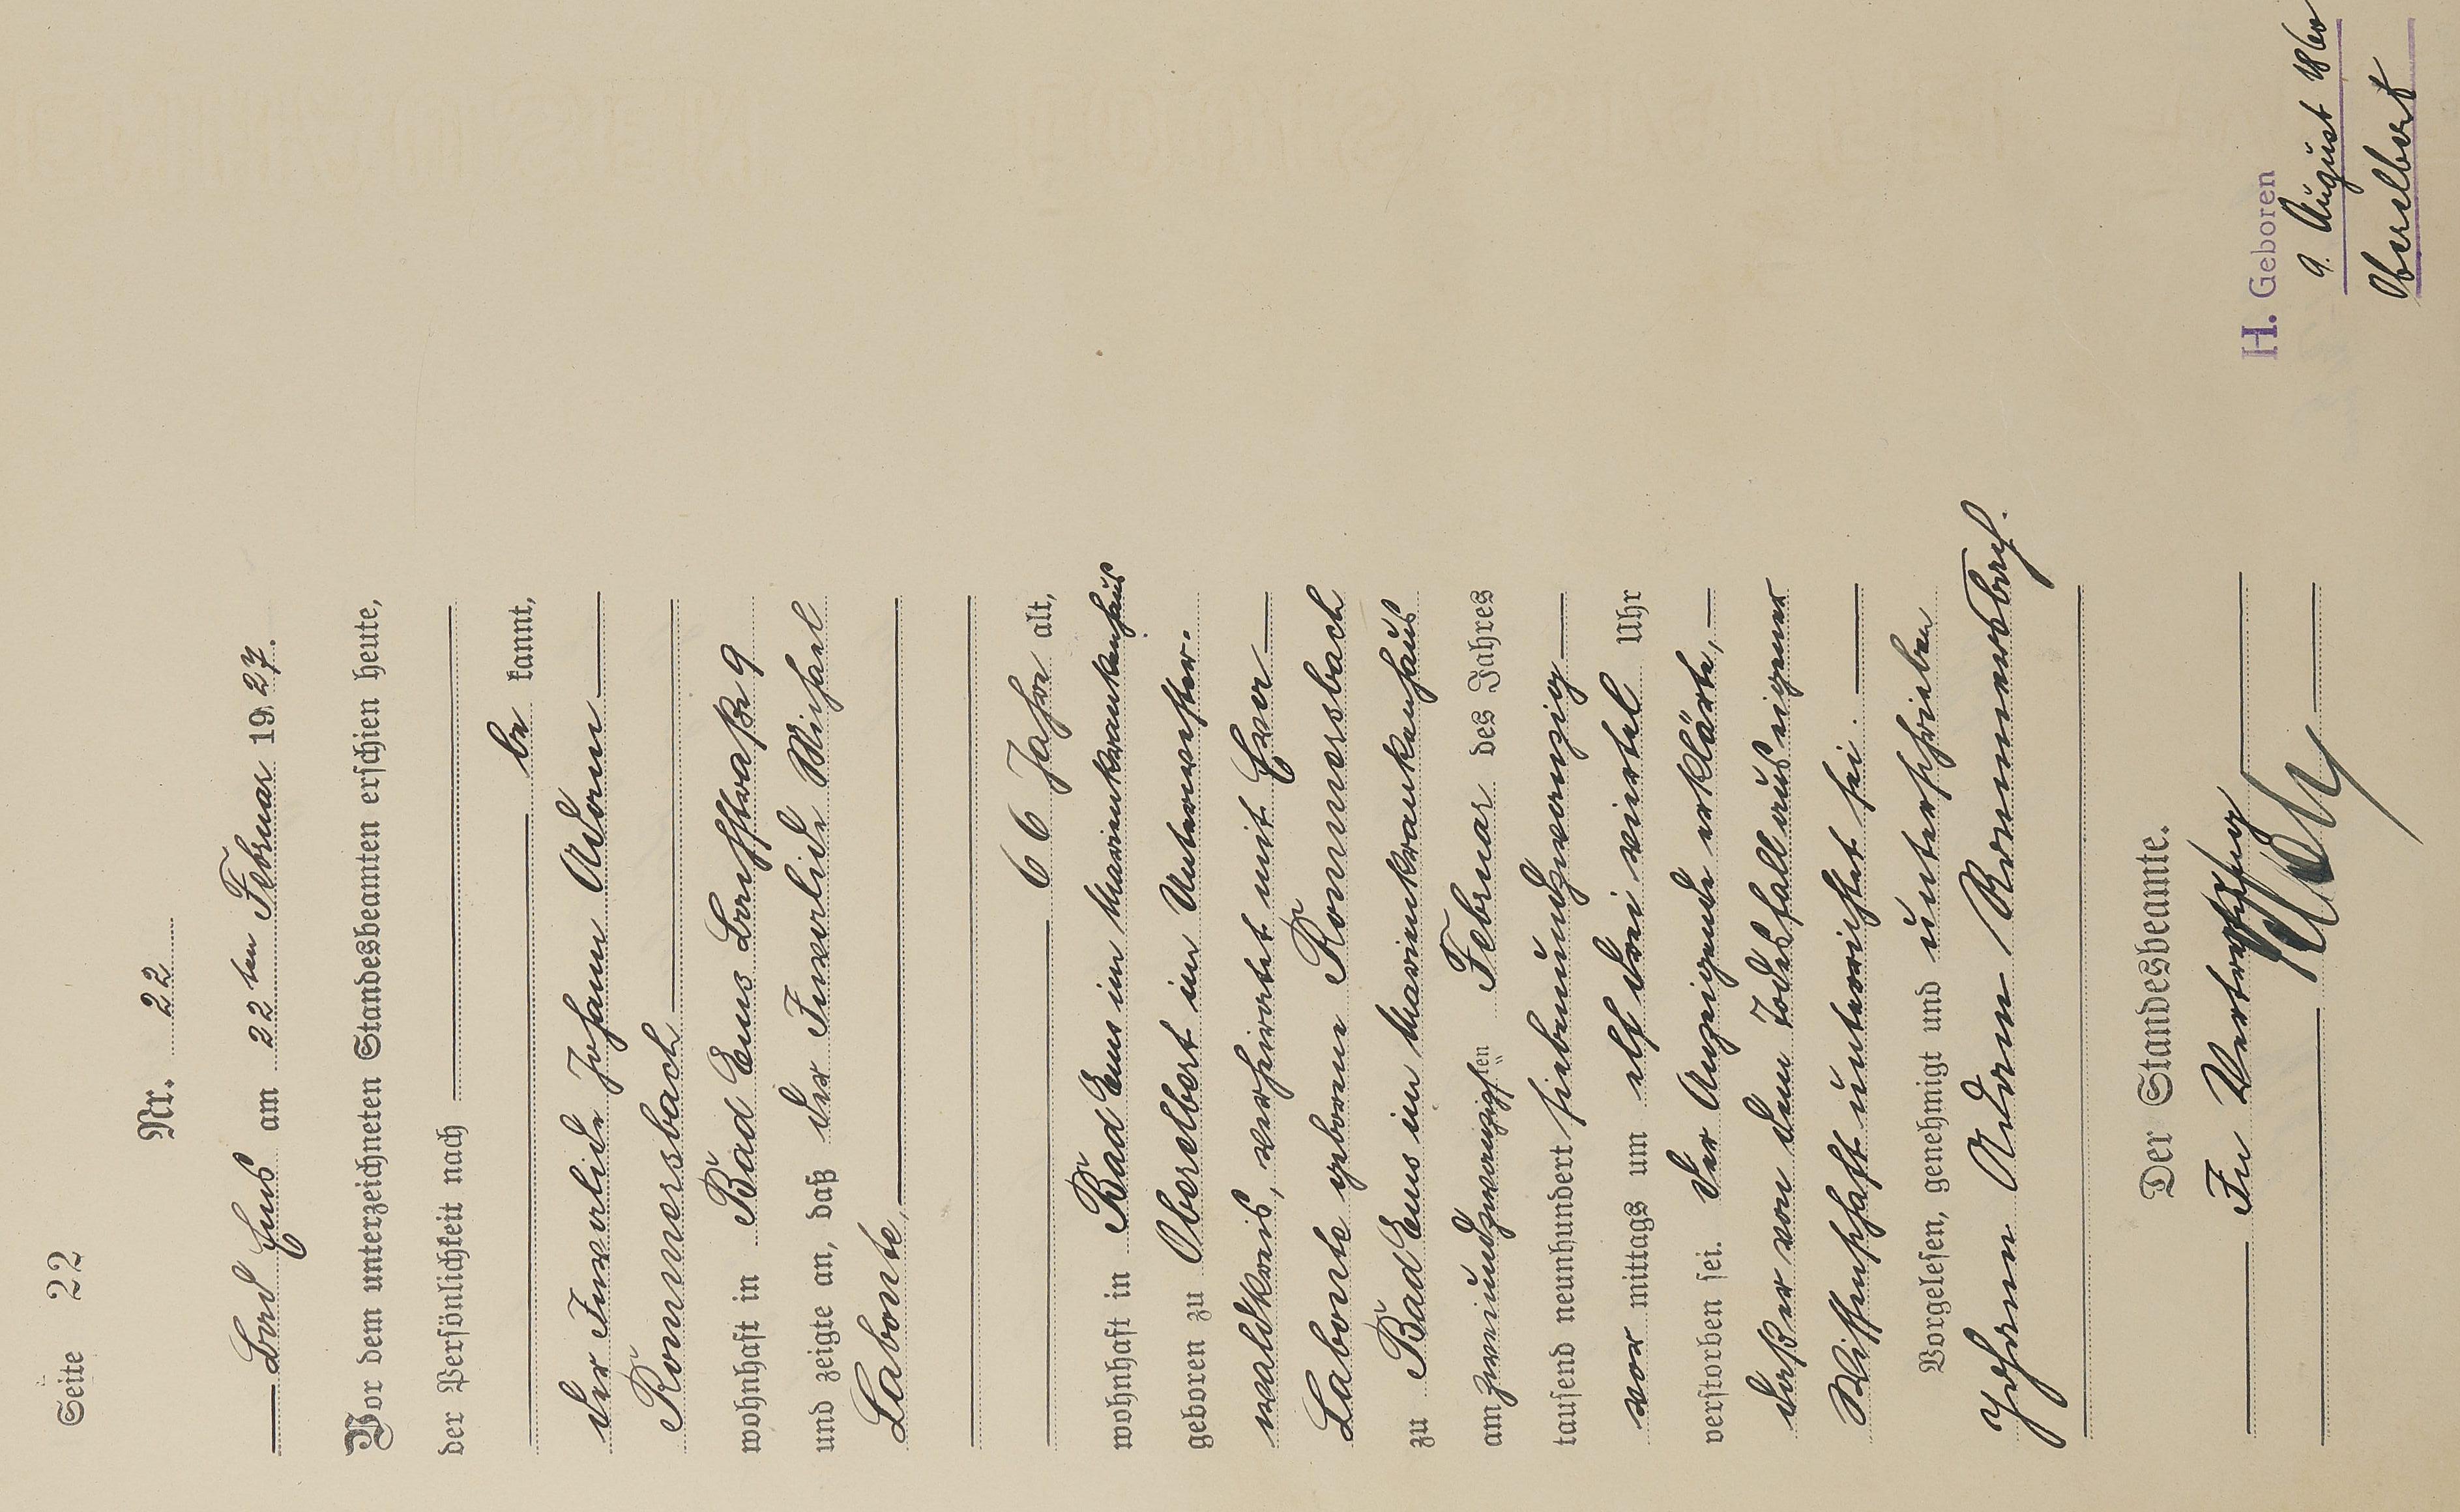 Seite 22
Nr. 22
Bad Ems am 22ten Februar 1927.
Vor dem unterzeichneten Standesbeamten erschien heute,
der Persönlichkeit nach
be kannt,
der Invalide Johann Adam
Rommersbach
wohnhaft in Bad Ems Bachstraße 9
und zeigte an, daß der Invalide Michael
Labonte,
66 Jahre alt,
wohnhaft in Bad Ems im Marienkrankenhaus
geboren zu Oberelbert im Unterwester-
waldkreis, verheiratet mit Eva
Labonte geborene Rommersbach
zu Bad Ems im Marienkrankenhaus
am zweiundzwanzigsten Februar des Jahres
tausend neunhundert siebenundzwanzig
vor mittags um elf drei viertel Uhr
verstorben sei. Der Anzeigende erklärte,
daß er von dem Todesfall aus eigener
Wissenschaft unterrichtet sei.
Vorgelesen, genehmigt und unterschrieben
Johann Adam Rommersbach.
Der Standesbeamte.
In Vertretung
H. Geboren
9. August 1860
Oberelbert